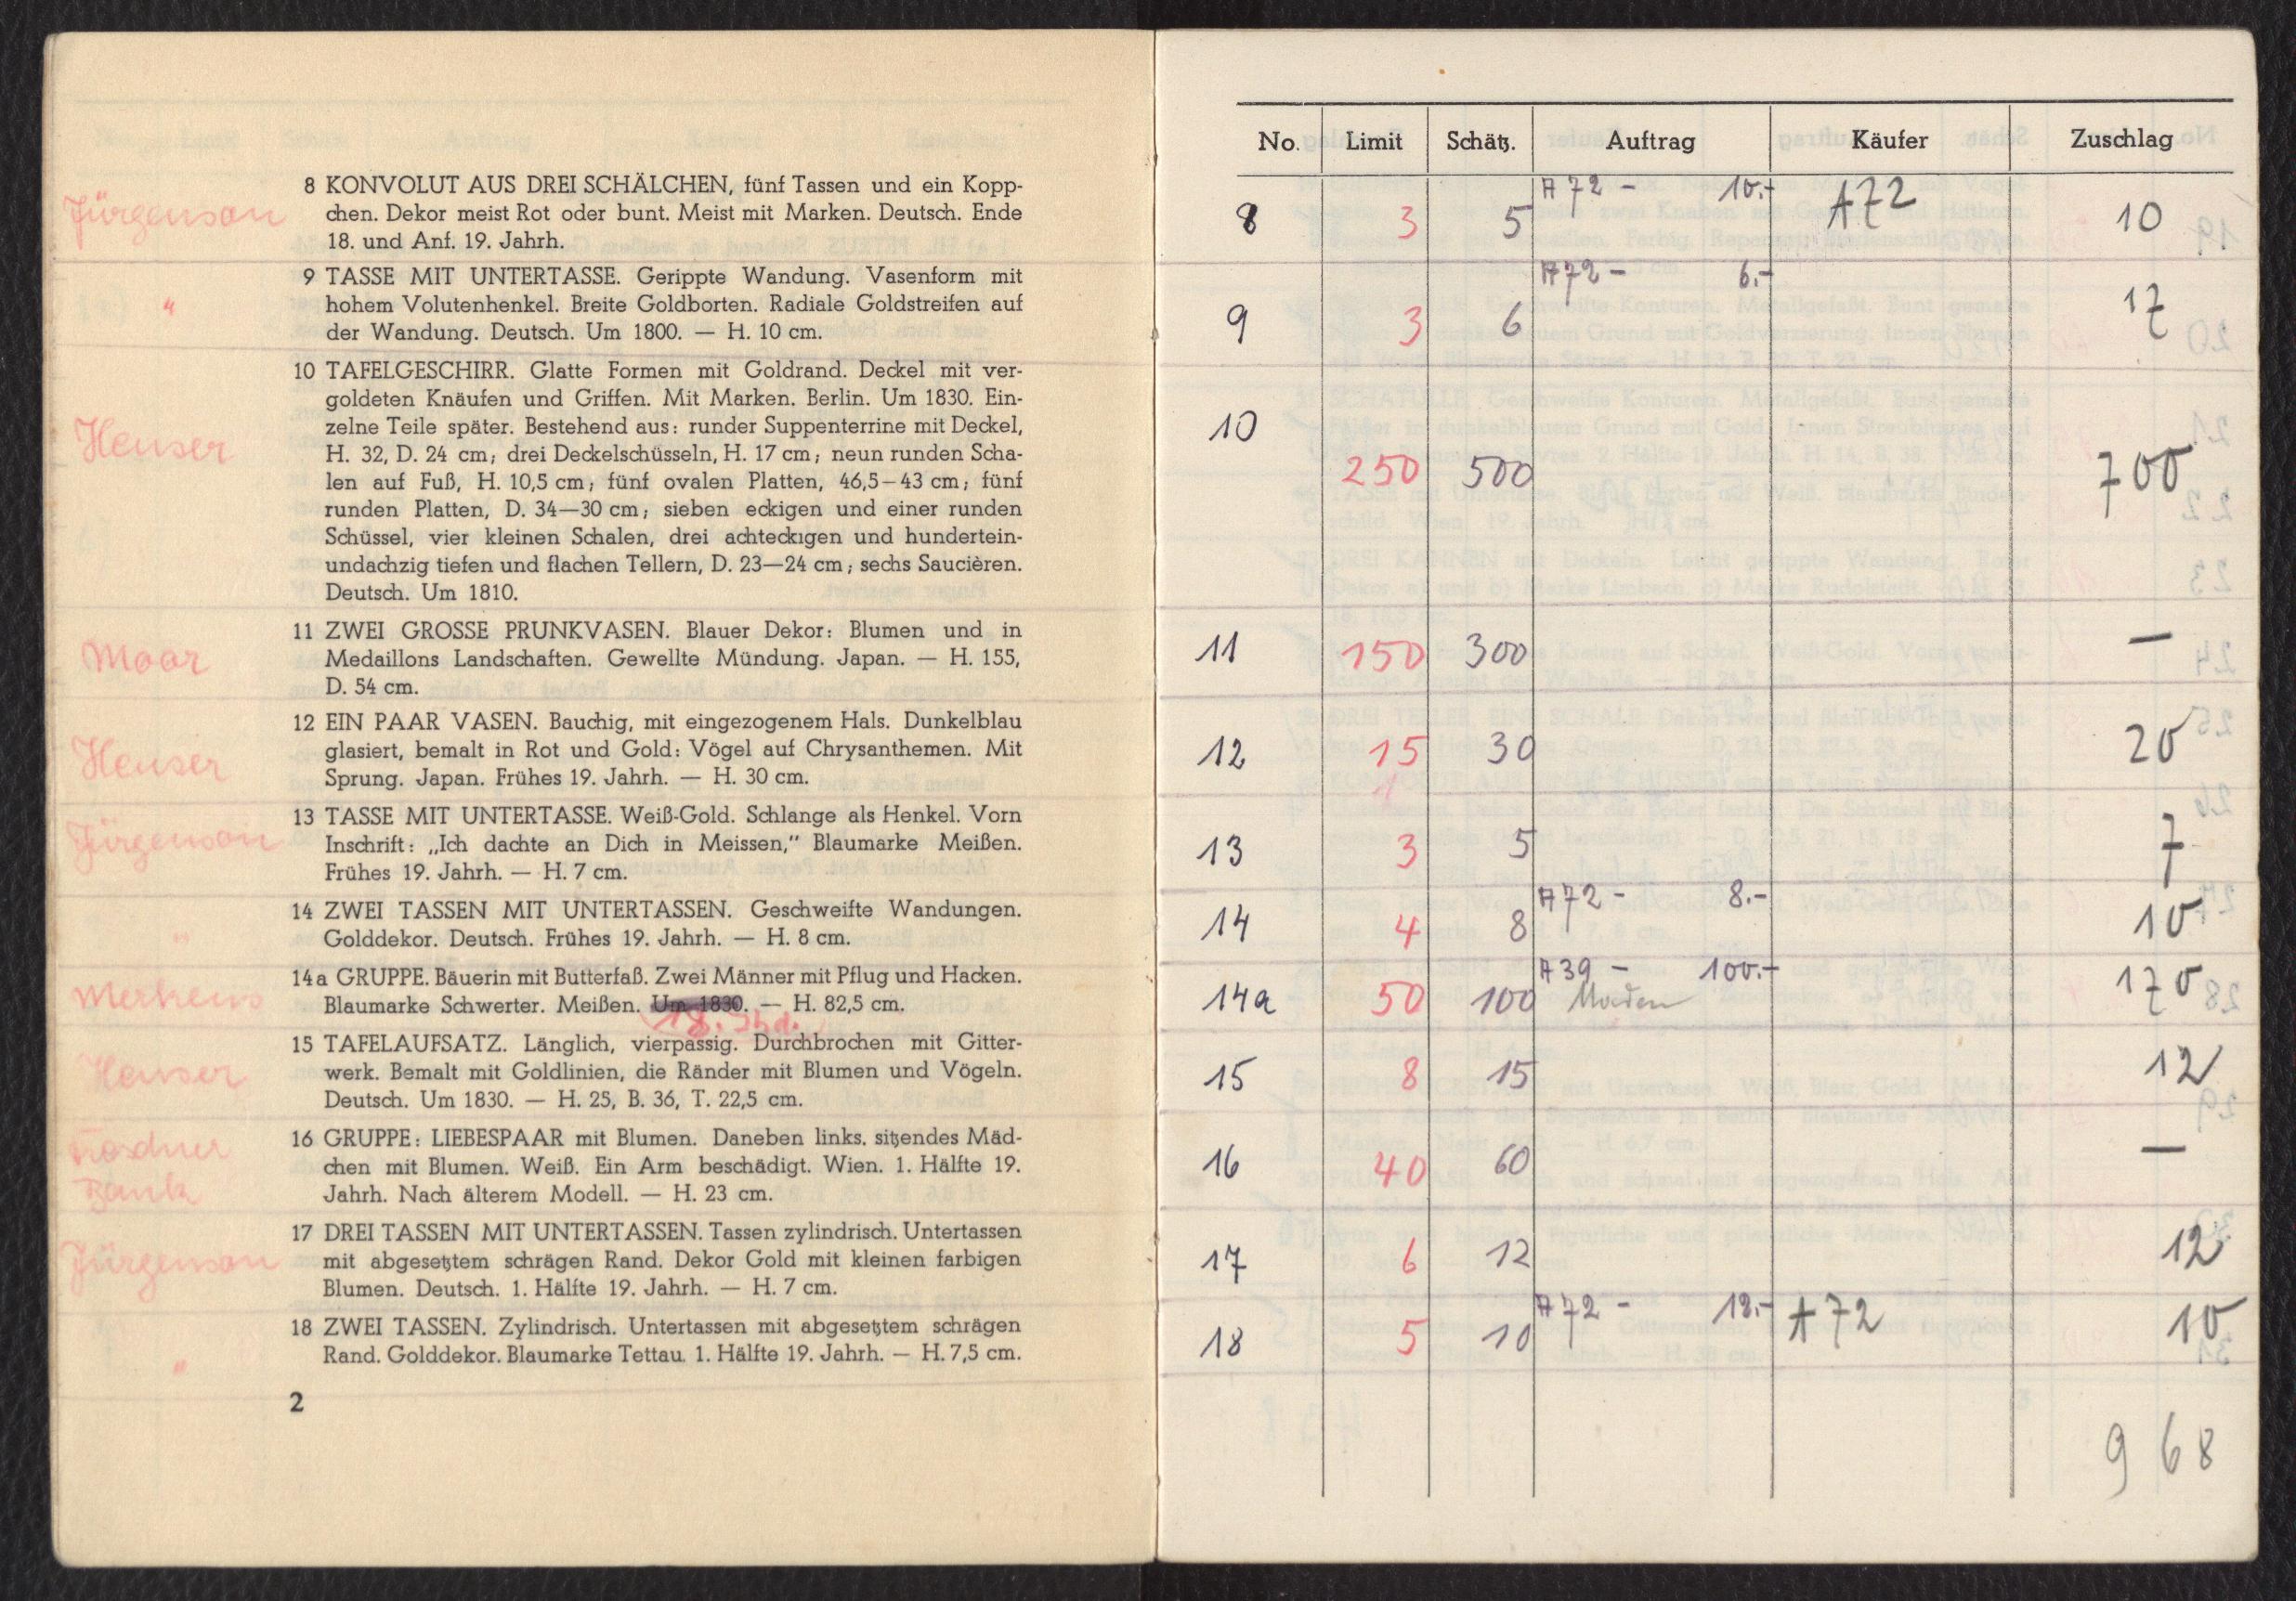 8 KONVOLUT AUS DREI SCHÄLCHEN, fünf Tassen und ein Kopp-
Jürgenson
chen. Dekor meist Rot oder bunt. Meist mit Marken. Deutsch. Ende
18. und Anf. 19. Jahrh.
9 TASSE MIT UNTERTASSE. Gerippte Wandung. Vasenform mit
"
hohem Volutenhenkel. Breite Goldborten. Radiale Goldstreifen auf
der Wandung. Deutsch. Um 1800. — H. 10 cm.
10 TAFELGESCHIRR. Glatte Formen mit Goldrand. Deckel mit ver-
goldeten Knäufen und Griffen. Mit Marken. Berlin. Um 1830. Ein-
zelne Teile später. Bestehend aus: runder Suppenterrine mit Deckel,
Heuser
H. 32, D. 24 cm; drei Deckelschüsseln, H. 17 cm; neun runden Scha-
len auf Fuß, H. 10,5 cm; fünf ovalen Platten, 46,5–43 cm; fünf
runden Platten, D. 34—30 cm; sieben eckigen und einer runden
Schüssel, vier kleinen Schalen, drei achteckigen und hundertein-
undachzig tiefen und flachen Tellern, D. 23—24 cm; sechs Saucièren.
Deutsch. Um 1810.
11 ZWEI GROSSE PRUNKVASEN. Blauer Dekor: Blumen und in
Moar
Medaillons Landschaften. Gewellte Mündung. Japan. — H. 155,
D. 54 cm.
12 EIN PAAR VASEN. Bauchig, mit eingezogenem Hals. Dunkelblau
Heuser
glasiert, bemalt in Rot und Gold: Vögel auf Chrysanthemen. Mit
Sprung. Japan. Frühes 19. Jahrh. — H. 30 cm.
13 TASSE MIT UNTERTASSE. Weiß-Gold. Schlange als Henkel. Vorn
Jürgenson
Inschrift: „Ich dachte an Dich in Meissen,” Blaumarke Meißen.
Frühes 19. Jahrh. — H. 7 cm.
14 ZWEI TASSEN MIT UNTERTASSEN. Geschweifte Wandungen.
"
Golddekor. Deutsch. Frühes 19. Jahrh. — H. 8 cm.
14a GRUPPE. Bäuerin mit Butterfaß. Zwei Männer mit Pflug und Hacken.
Merkens
Blaumarke Schwerter. Meißen. Um 1830. — H. 82,5 cm.
18. Jhd.
15 TAFELAUFSATZ. Länglich, vierpassig. Durchbrochen mit Gitter-
Heuser
werk. Bemalt mit Goldlinien, die Ränder mit Blumen und Vögeln.
Deutsch. Um 1830. — H. 25, B. 36, T. 22,5 cm.
16 GRUPPE: LIEBESPAAR mit Blumen. Daneben links. sitzendes Mäd-
chen mit Blumen. Weiß. Ein Arm beschädigt. Wien. 1. Hälfte 19.
Bank
Jahrh. Nach älterem Modell. — H. 23 cm.
17 DREI TASSEN MIT UNTERTASSEN. Tassen zylindrisch. Untertassen
Jürgenson
mit abgesetztem schrägen Rand. Dekor Gold mit kleinen farbigen
Blumen. Deutsch. 1. Hälfte 19. Jahrh. — H. 7 cm.
18 ZWEI TASSEN. Zylindrisch. Untertassen mit abgesetztem schrägen
"
Rand. Golddekor. Blaumarke Tettau. 1. Hälfte 19. Jahrh. — H. 7,5 cm.
2
No. Limit Schätz. Auftrag Käufer Zuschlag
8 3 5 A72 - 10.- A72 10
9 3 6 A72 - 6.- 17
10 250 500 700
11 150 300 —
12 15 30 20
13 3 5 7
14 4 8 A72 - 8.- 10
14a 50 100 A39 - 100.- 170
15 8 15 12
16 40 60 —
17 6 12 12
18 5 10 A72 - 12.- A72 10
968